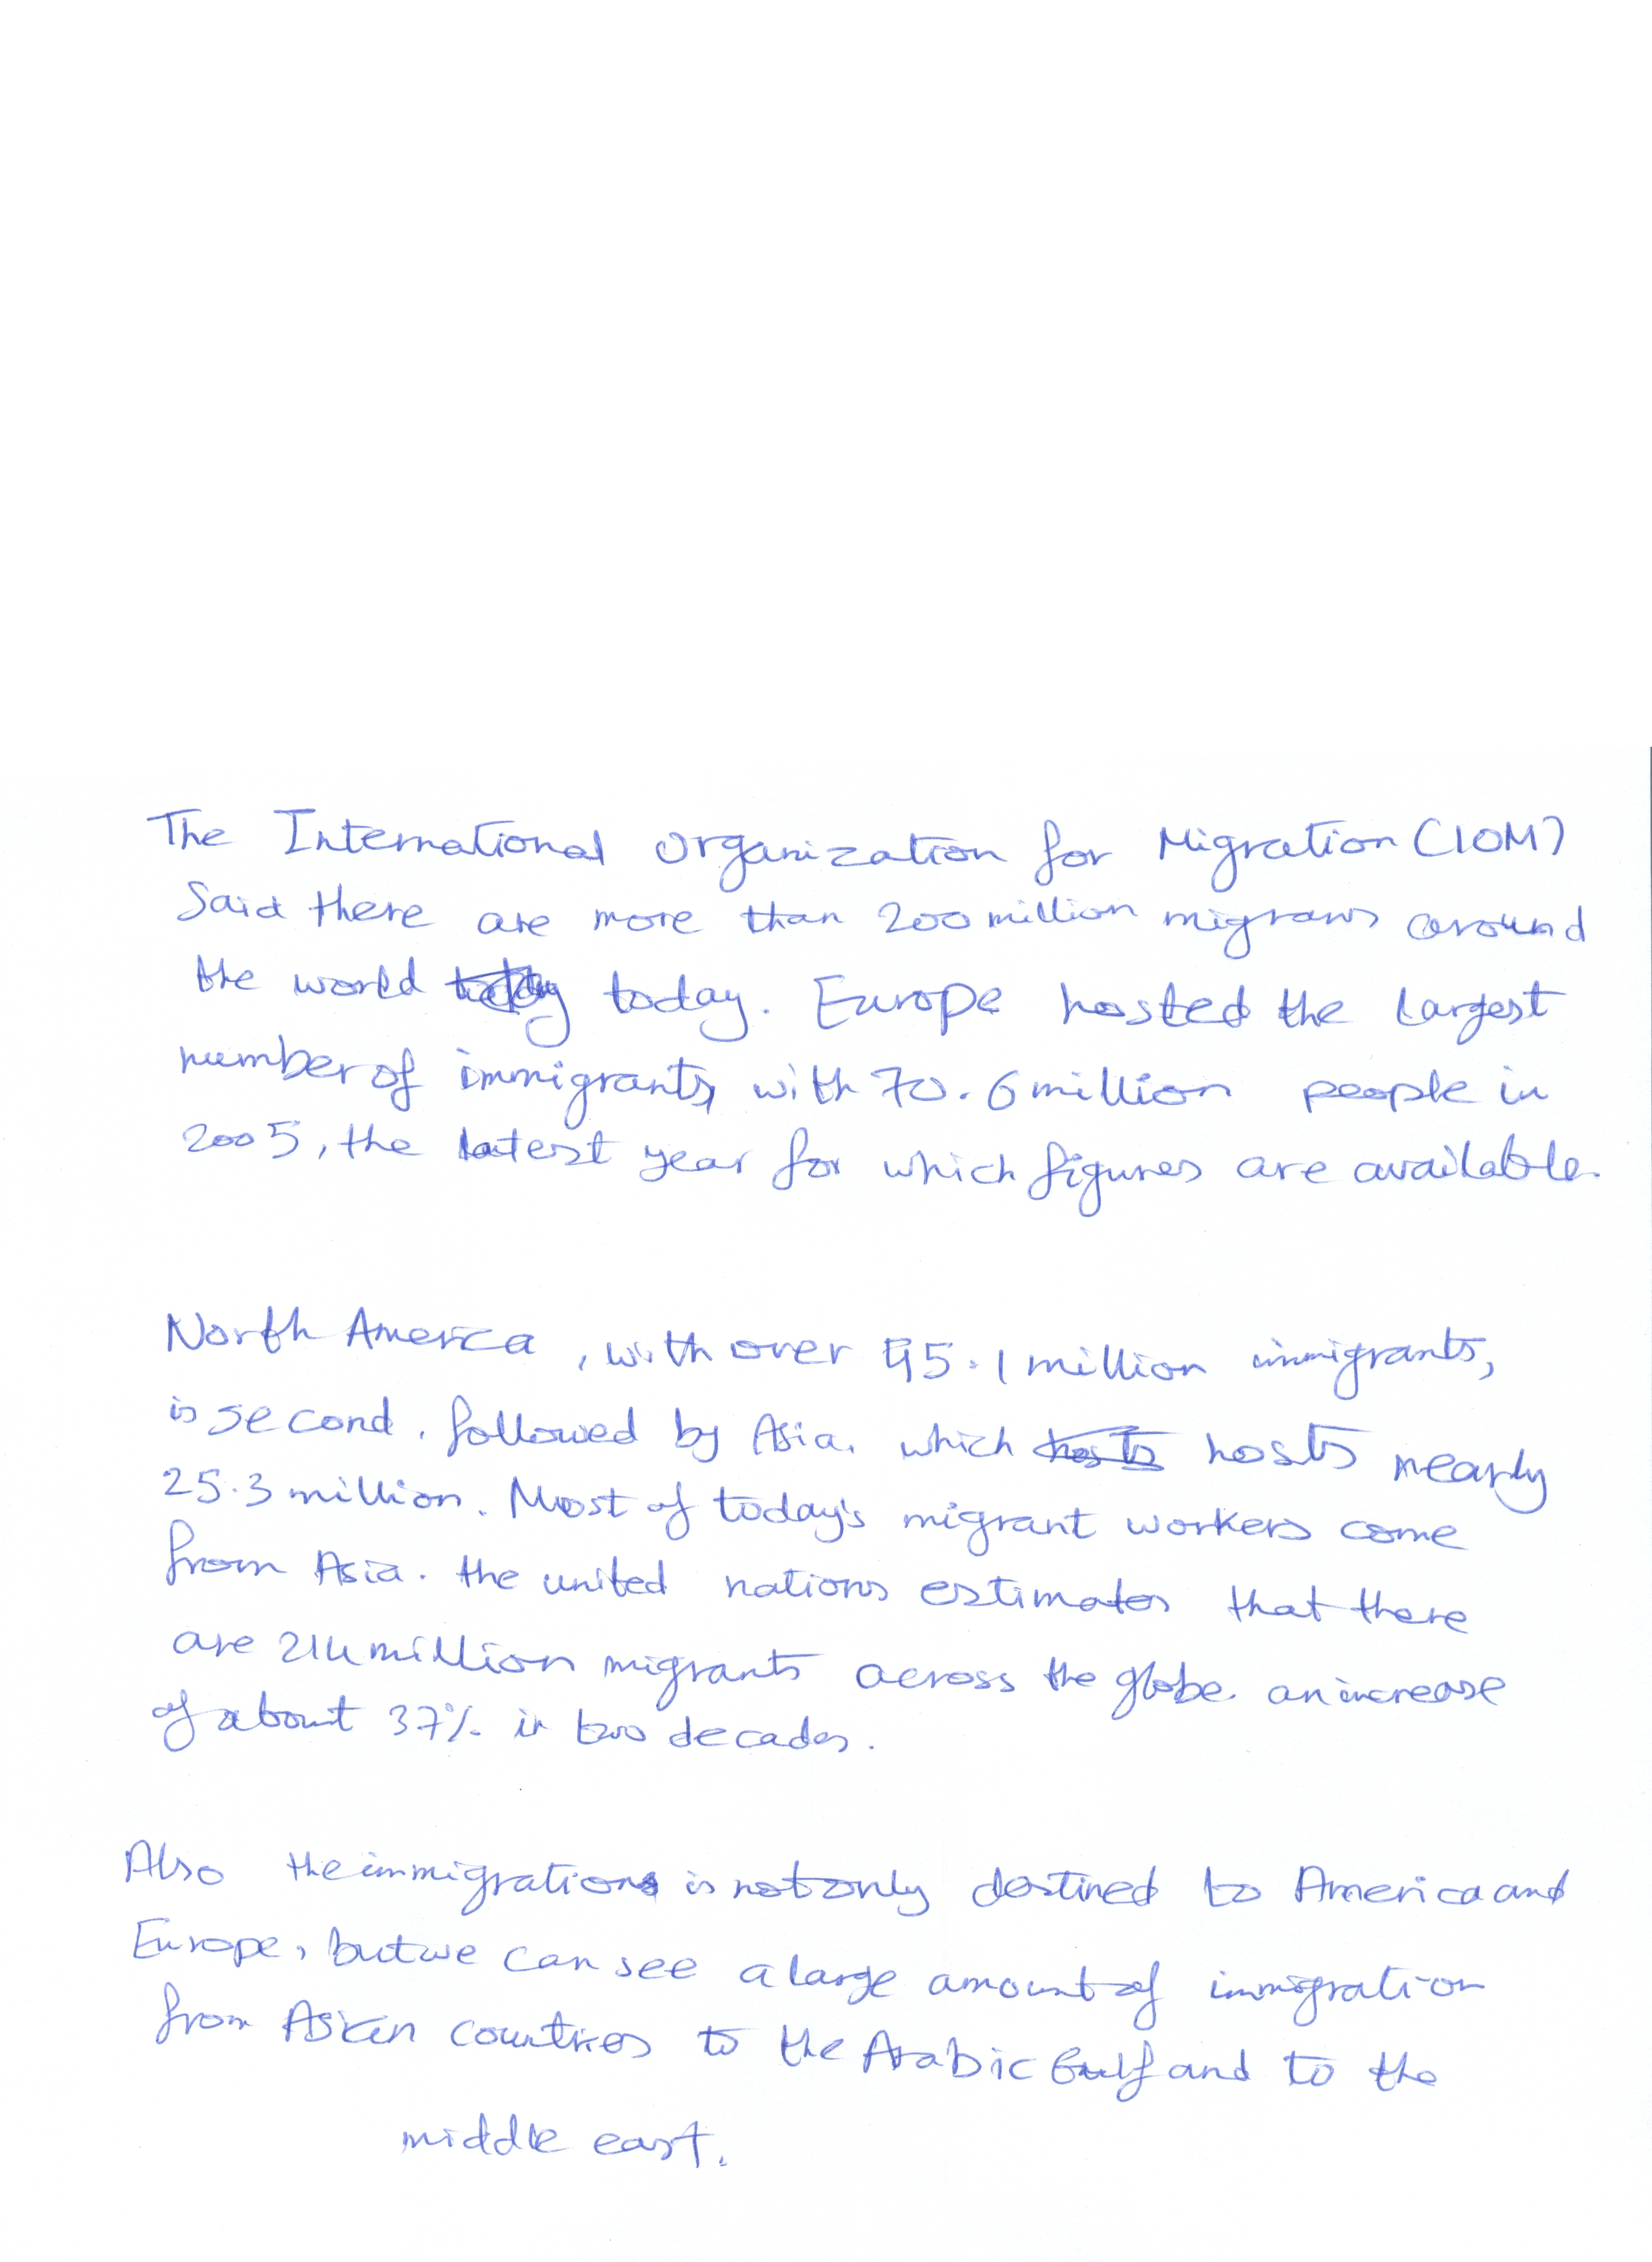 The International Organization for Migration (IOM)
Said there are more than 200 million migrans around
the world today. Europe hosted the Largest
number of immigrants, with 70.6 million people in
2005, the latest year for which figures are available.
North America, with over 45.1 million immigrants,
is second, followed by Asia, which hosts nearly
25.3 million. Most of today's migrant workers come
from Asia. the united nations estimates that there
are 214 million migrants across the globe. an increase
of about 37% in two decades.
Also the immigrations is not only destined to America and
Europe, but we can see a large amount of immigration
from Asian countries to the Arabic Gulf and to the
middle east.